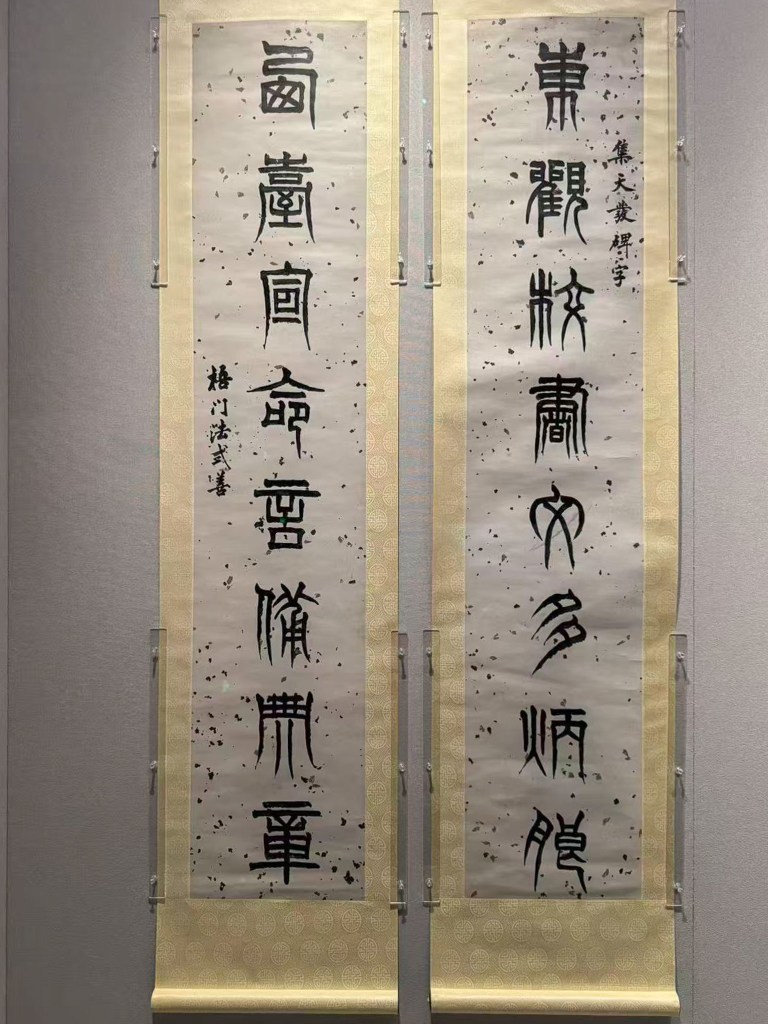 集天發碑字
東觀校書文多炳朖
西臺宣命言備典章
梧門法式善